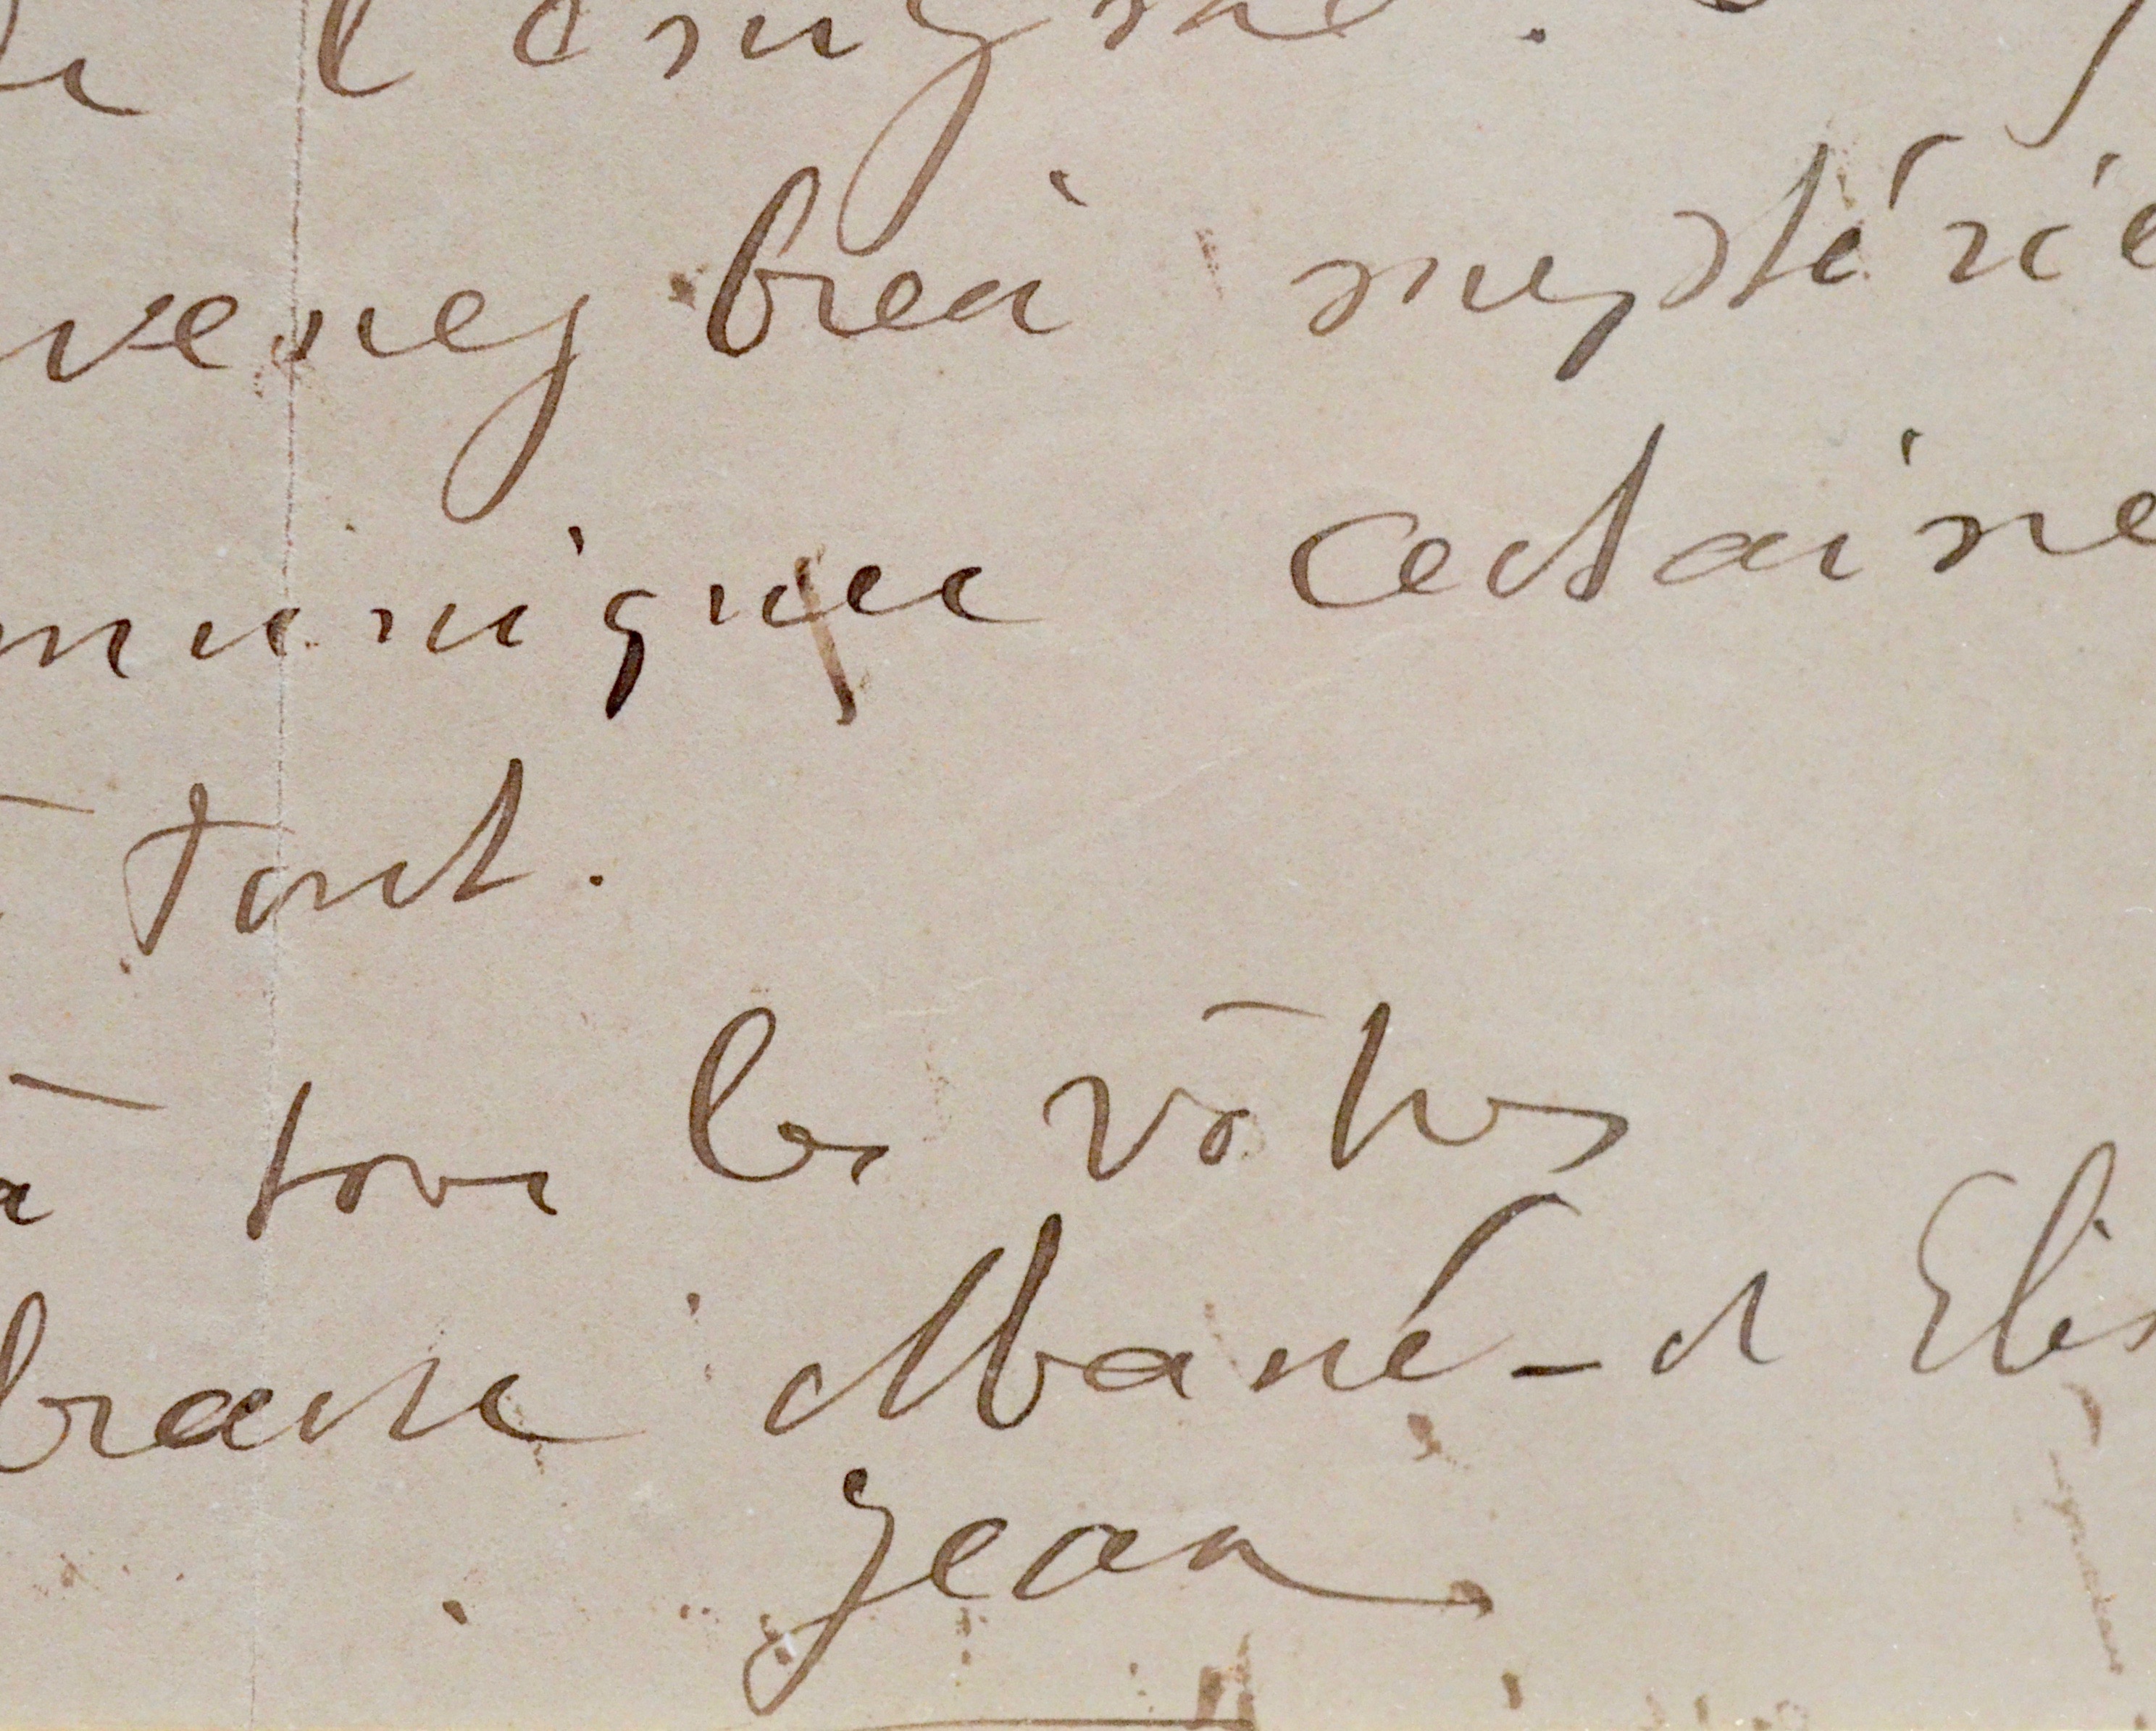 de l'énigme.
venez bien mystérie
muniquer certaine
à tout.
à tous les vôtres
brasse Mané - et Elis
Jean